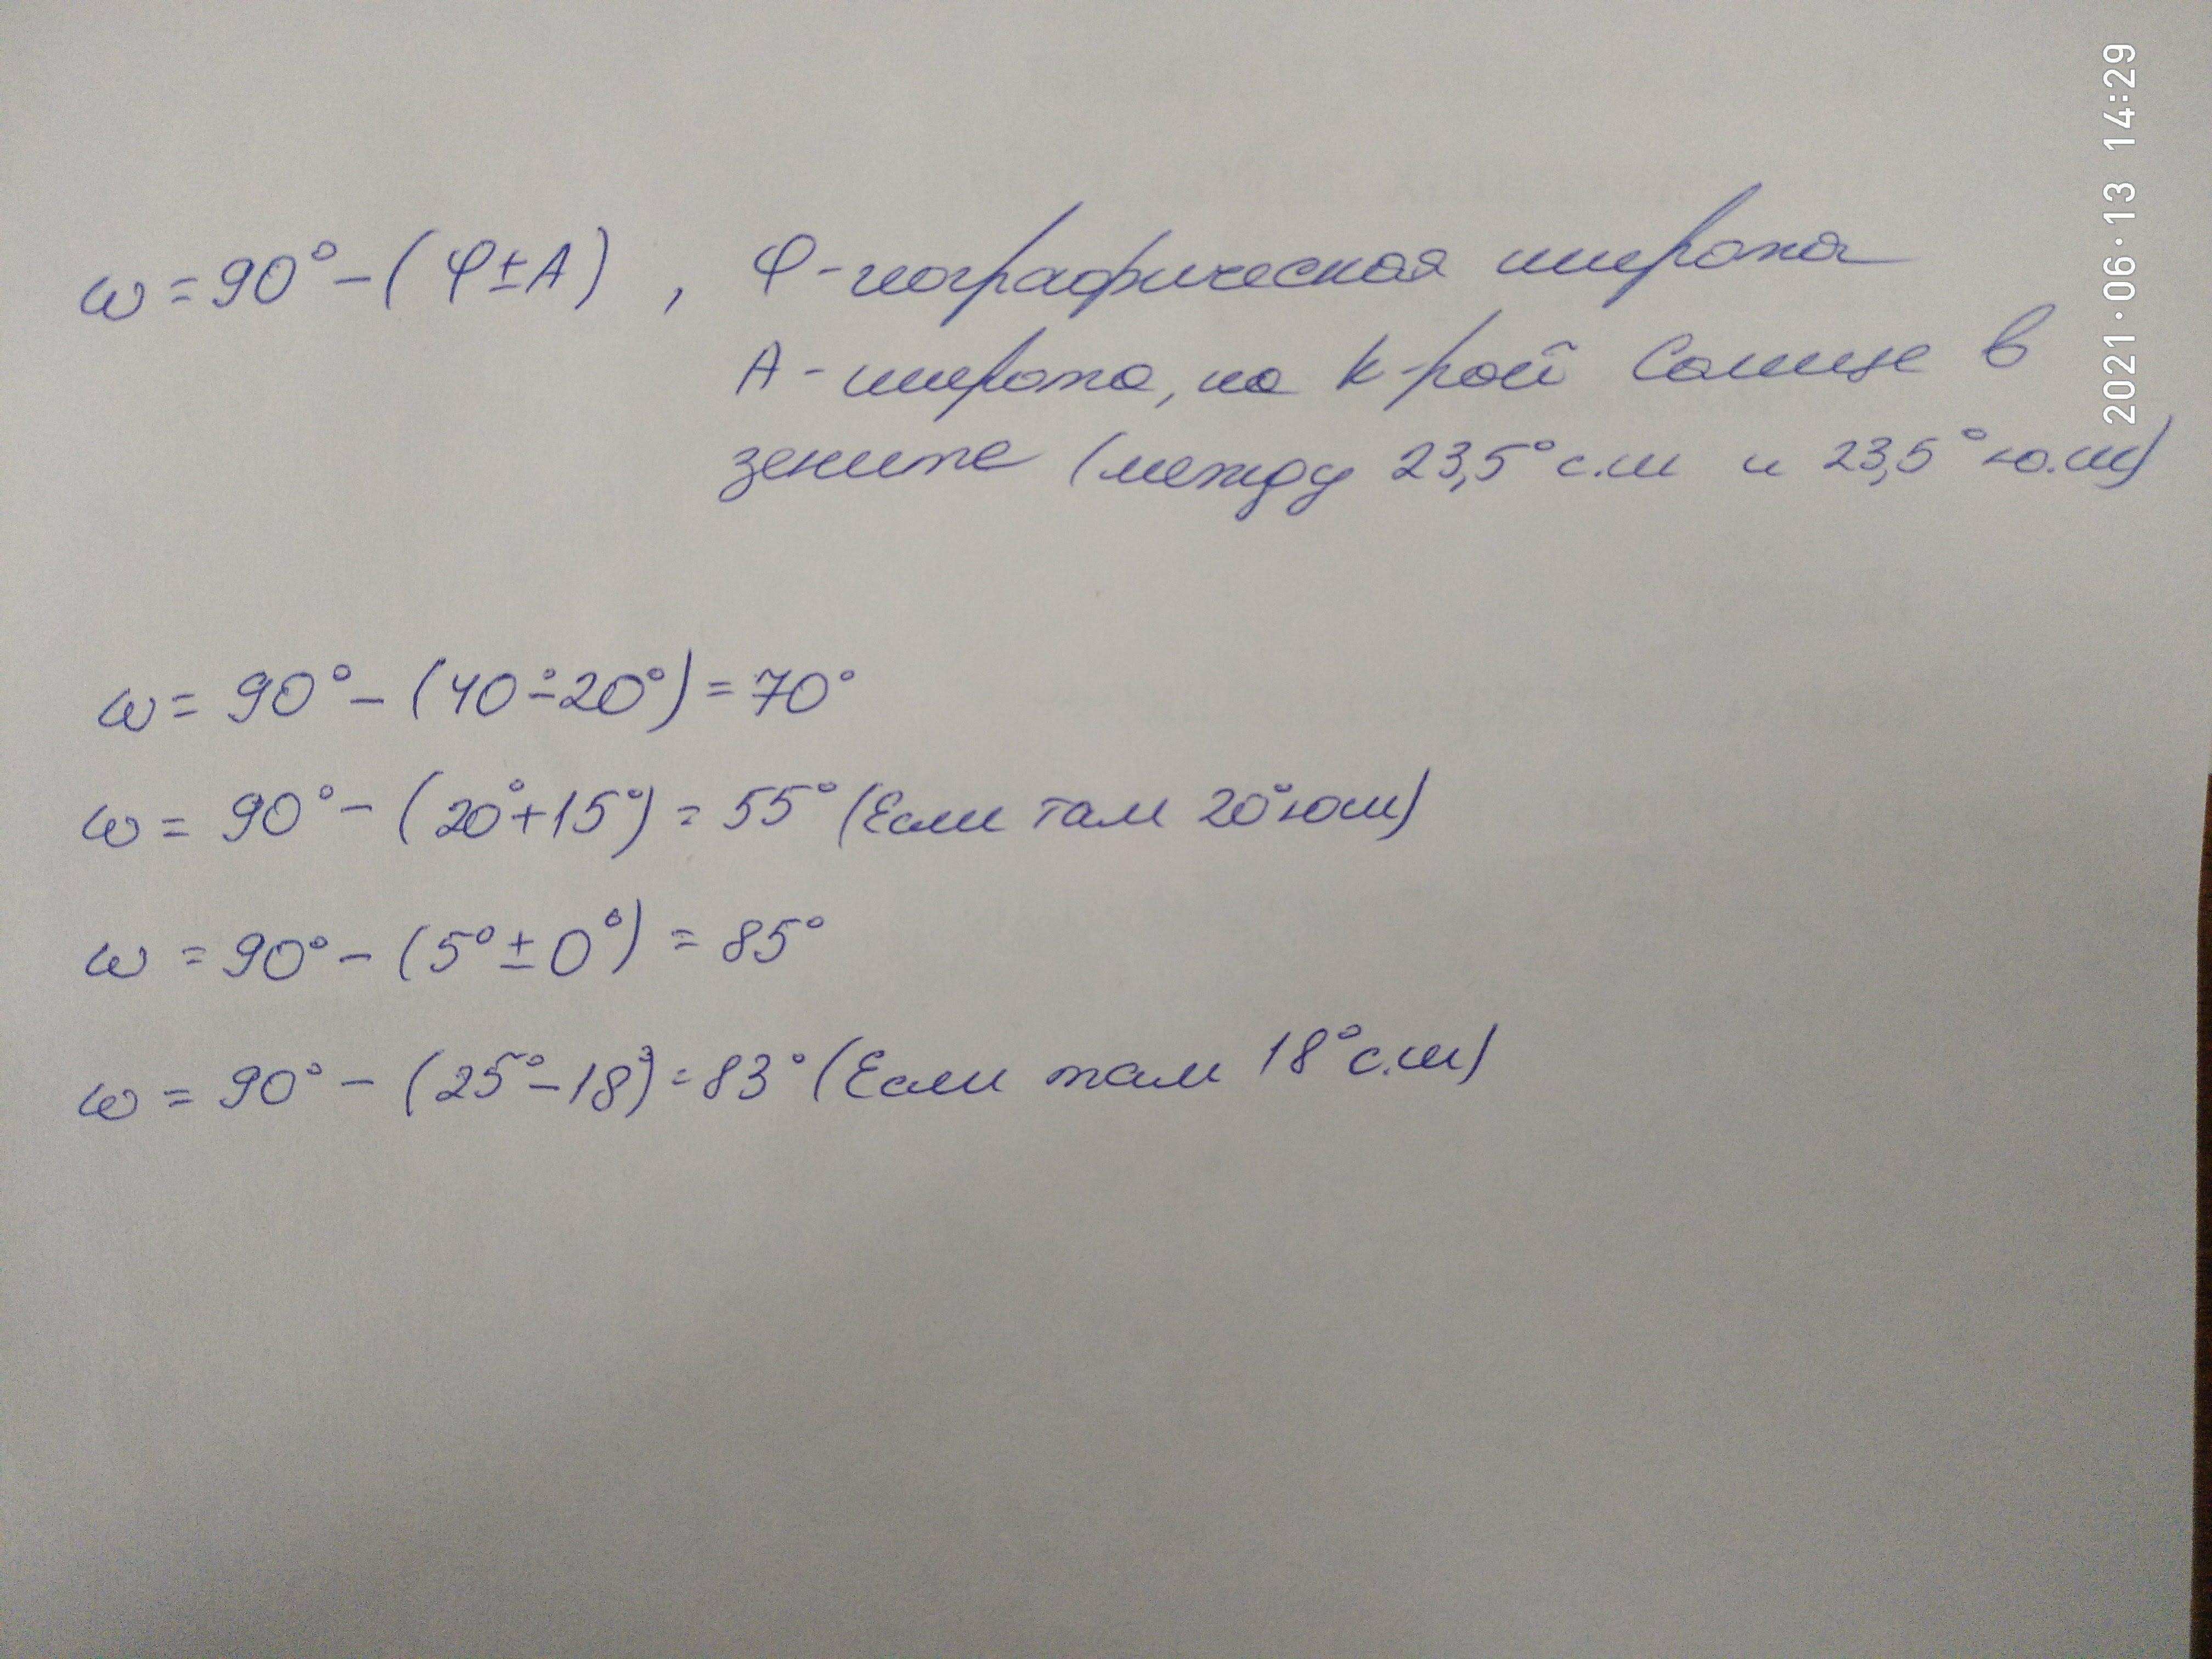 ω = 90° - (φ ± A) , φ - географическая широта
A - широта, на к-рой Солнце в
зените (между 23,5° с.ш и 23,5° ю.ш)
ω = 90° - (40° - 20°) = 70°
ω = 90° - (20° + 15°) = 55° (Если там 20° юш)
ω = 90° - (5° ± 0°) = 85°
ω = 90° - (25° - 18°) = 83° (Если там 18° с.ш)
2021·06·13 14:29